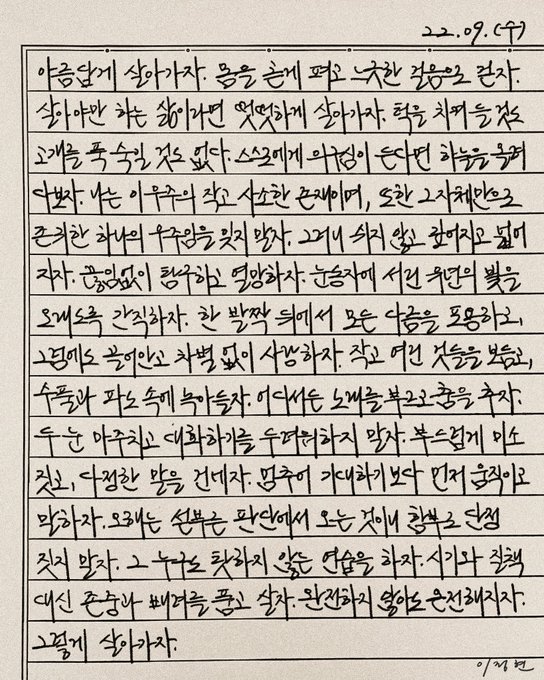 22.09.(수)
아름답게 살아가자. 몸을 흔게 펴고 느긋한 걸음으로 걷자.
살아야만 하는 삶이라면 떳떳하게 살아가자. 턱을 치켜들 것도
고개를 푹 숙일 것도 없다. 스스로에게 의구심이 든다면 하늘을 올려
다보자. 나는 이 우주의 작고 사소한 존재이며, 또한 그 자체만으로
존귀한 하나의 우주임을 잊지 말자. 그러니 쉬지 않고 깊어지고 넓어
지자. 끊임없이 탐구하고 열망하자. 눈동자에 서린 유년의 빛을
오래도록 간직하자. 한 발짝 뒤에서 모든 다름을 포용하고,
그럼에도 끌어안고 차별 없이 사랑하자. 작고 여린 것들을 보듬고,
수풀과 파도 속에 녹아들자. 어디서든 노래를 부르고 춤을 추자.
두 눈 마주치고 대화하기를 두려워하지 말자. 부드럽게 미소
짓고, 다정한 말을 건네자. 멈추어 기대하기보다 먼저 움직이고
말하자. 오해는 섣부른 판단에서 오는 것이니 함부로 단정
짓지 말자. 그 누구도 탓하지 않는 연습을 하자. 시기와 질책
대신 존중과 배려를 품고 살자. 완전하지 않아도 온전해지자.
그렇게 살아가자.
이정현